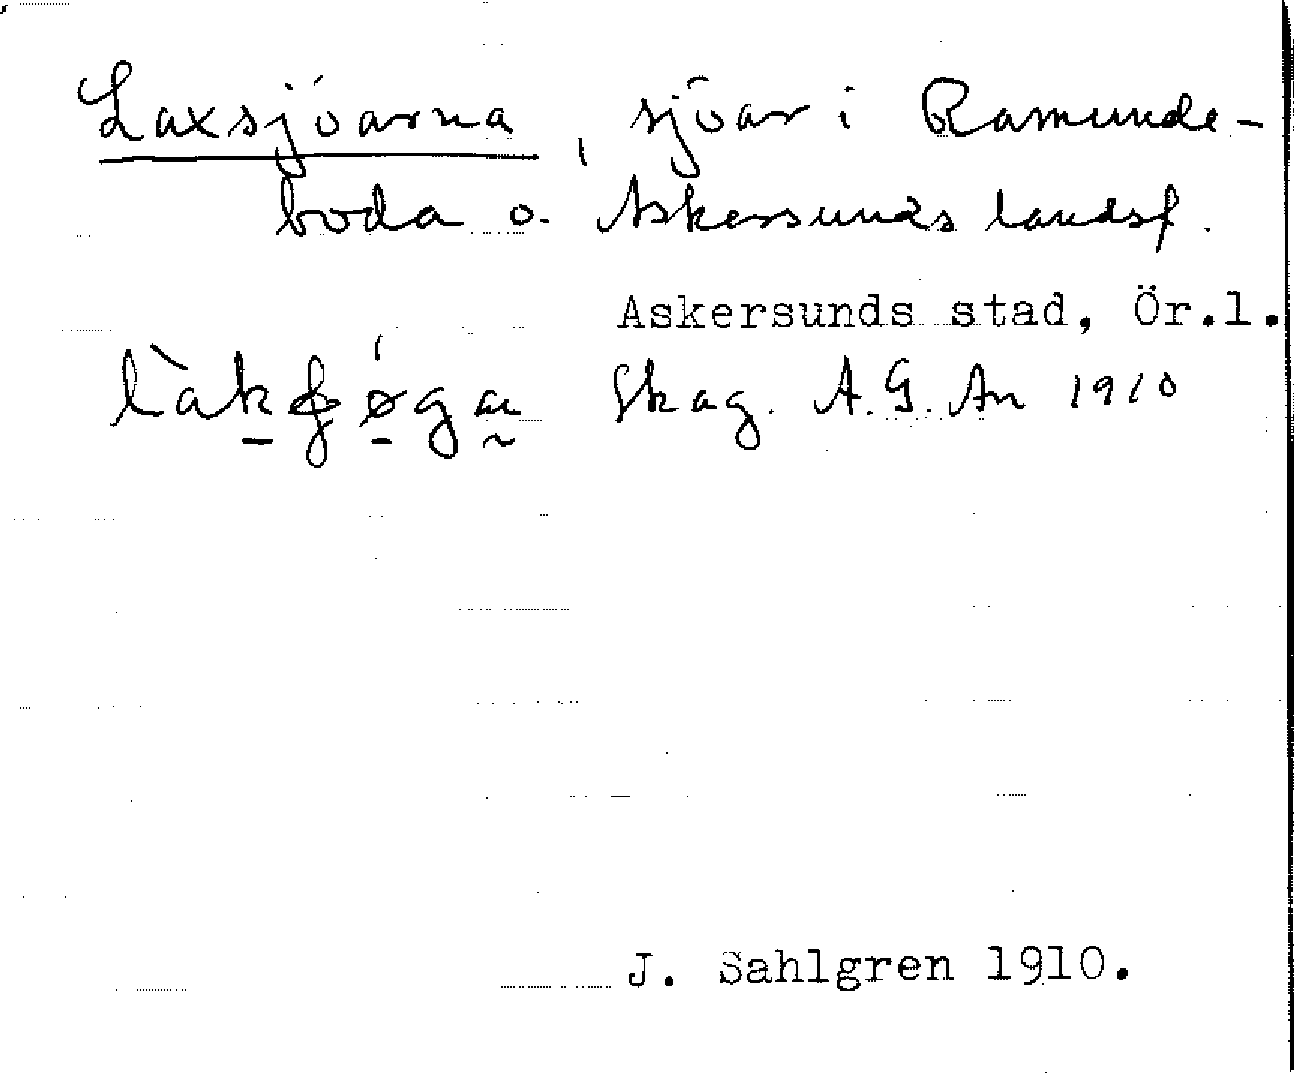 Laxsjöarna, sjöar i Ramunde-
boda o. Askersunds landsf.
Askersunds stad, Ör.l.
Skag. A.G. An 1910
J. Sahlgren 1910.